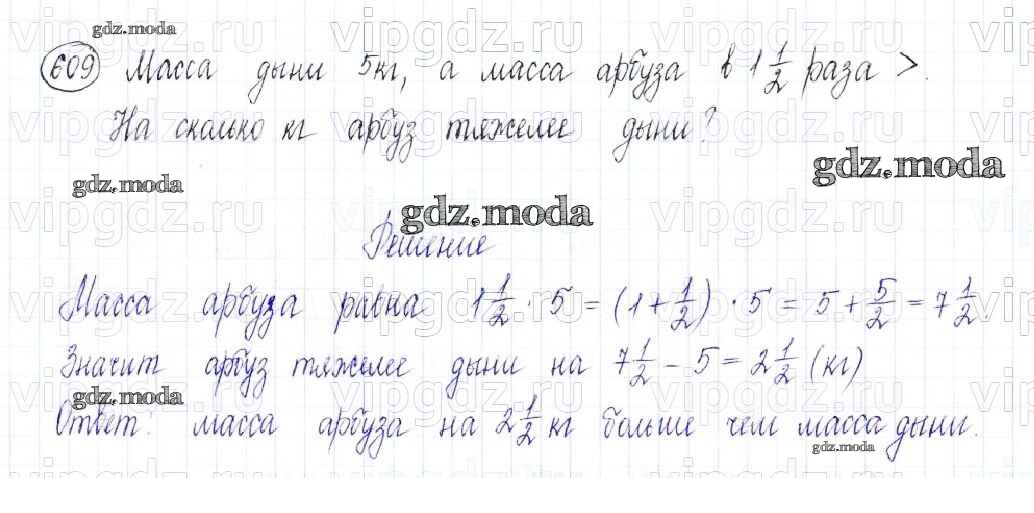 gdz.moda
609 Масса дыни 5кг, а масса арбуза в 1 1/2 раза >.
На сколько кг арбуз тяжелее дыни?
gdz.moda
gdz.moda
gdz.moda
Решение
Масса арбуза равна 1 1/2 · 5 = (1 + 1/2) · 5 = 5 + 5/2 = 7 1/2
Значит арбуз тяжелее дыни на 7 1/2 - 5 = 2 1/2 (кг)
gdz.moda
Ответ: масса арбуза на 2 1/2 кг больше чем масса дыни.
gdz.moda
vipgdz.ru vipgdz.ru vipgdz.ru vipgdz.ru